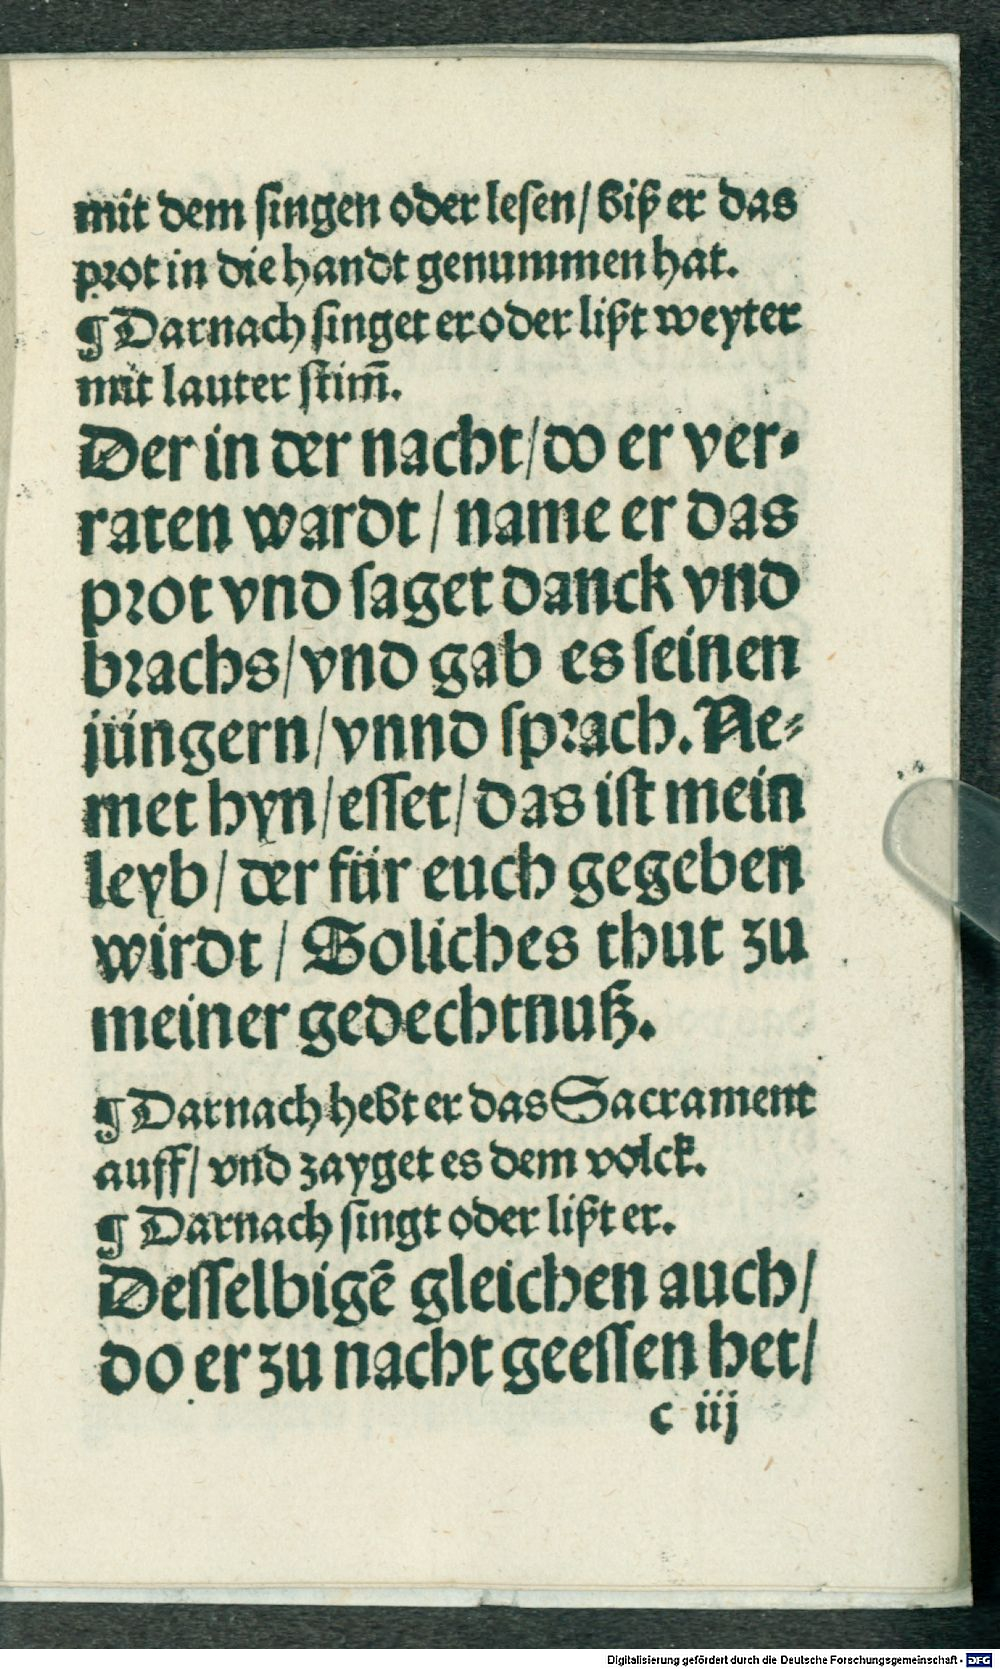 mit dem ſingen oder leſen/ biß er das
prot in die handt genummen hat.
¶ Darnach ſinget er oder lißt weyter
mit lauter ſtim̄.
Der in der nacht/ do er ver⸗
raten wardt / name er das
prot vnd ſaget danck vnd
brachs/ vnd gab es ſeinen
jüngern/ vnnd ſprach. Ne⸗
met hyn/ eſſet/ das iſt mein
leyb/ der für euch gegeben
wirdt / Soliches thut zu
meiner gedechtnuß.
¶ Darnach hebt er das Sacrament
auff/ vnd zayget es dem volck.
¶ Darnach ſingt oder lißt er.
Deſſelbigē gleichen auch/
do er zu nacht geeſſen het/
c iij
Digitalisierung gefördert durch die Deutsche Forschungsgemeinschaft - DFG